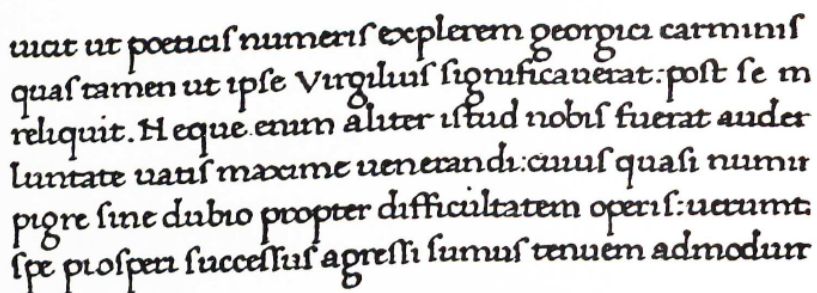 uicit ut poeticiſ numeriſ explerem georgici carminiſ
quaſ tamen ut ipſe Virgiliuſ ſignificauerat: poſt ſe m
reliquit. Neque enim aliter iſtud nobiſ fuerat auder
luntate uatiſ maxime uenerandi: cuiuſ quaſi numir
pigre ſine dubio propter difficultatem operiſ: uerumt
ſpe proſperi ſucceſſuſ agreſſi ſumuſ tenuem admodum